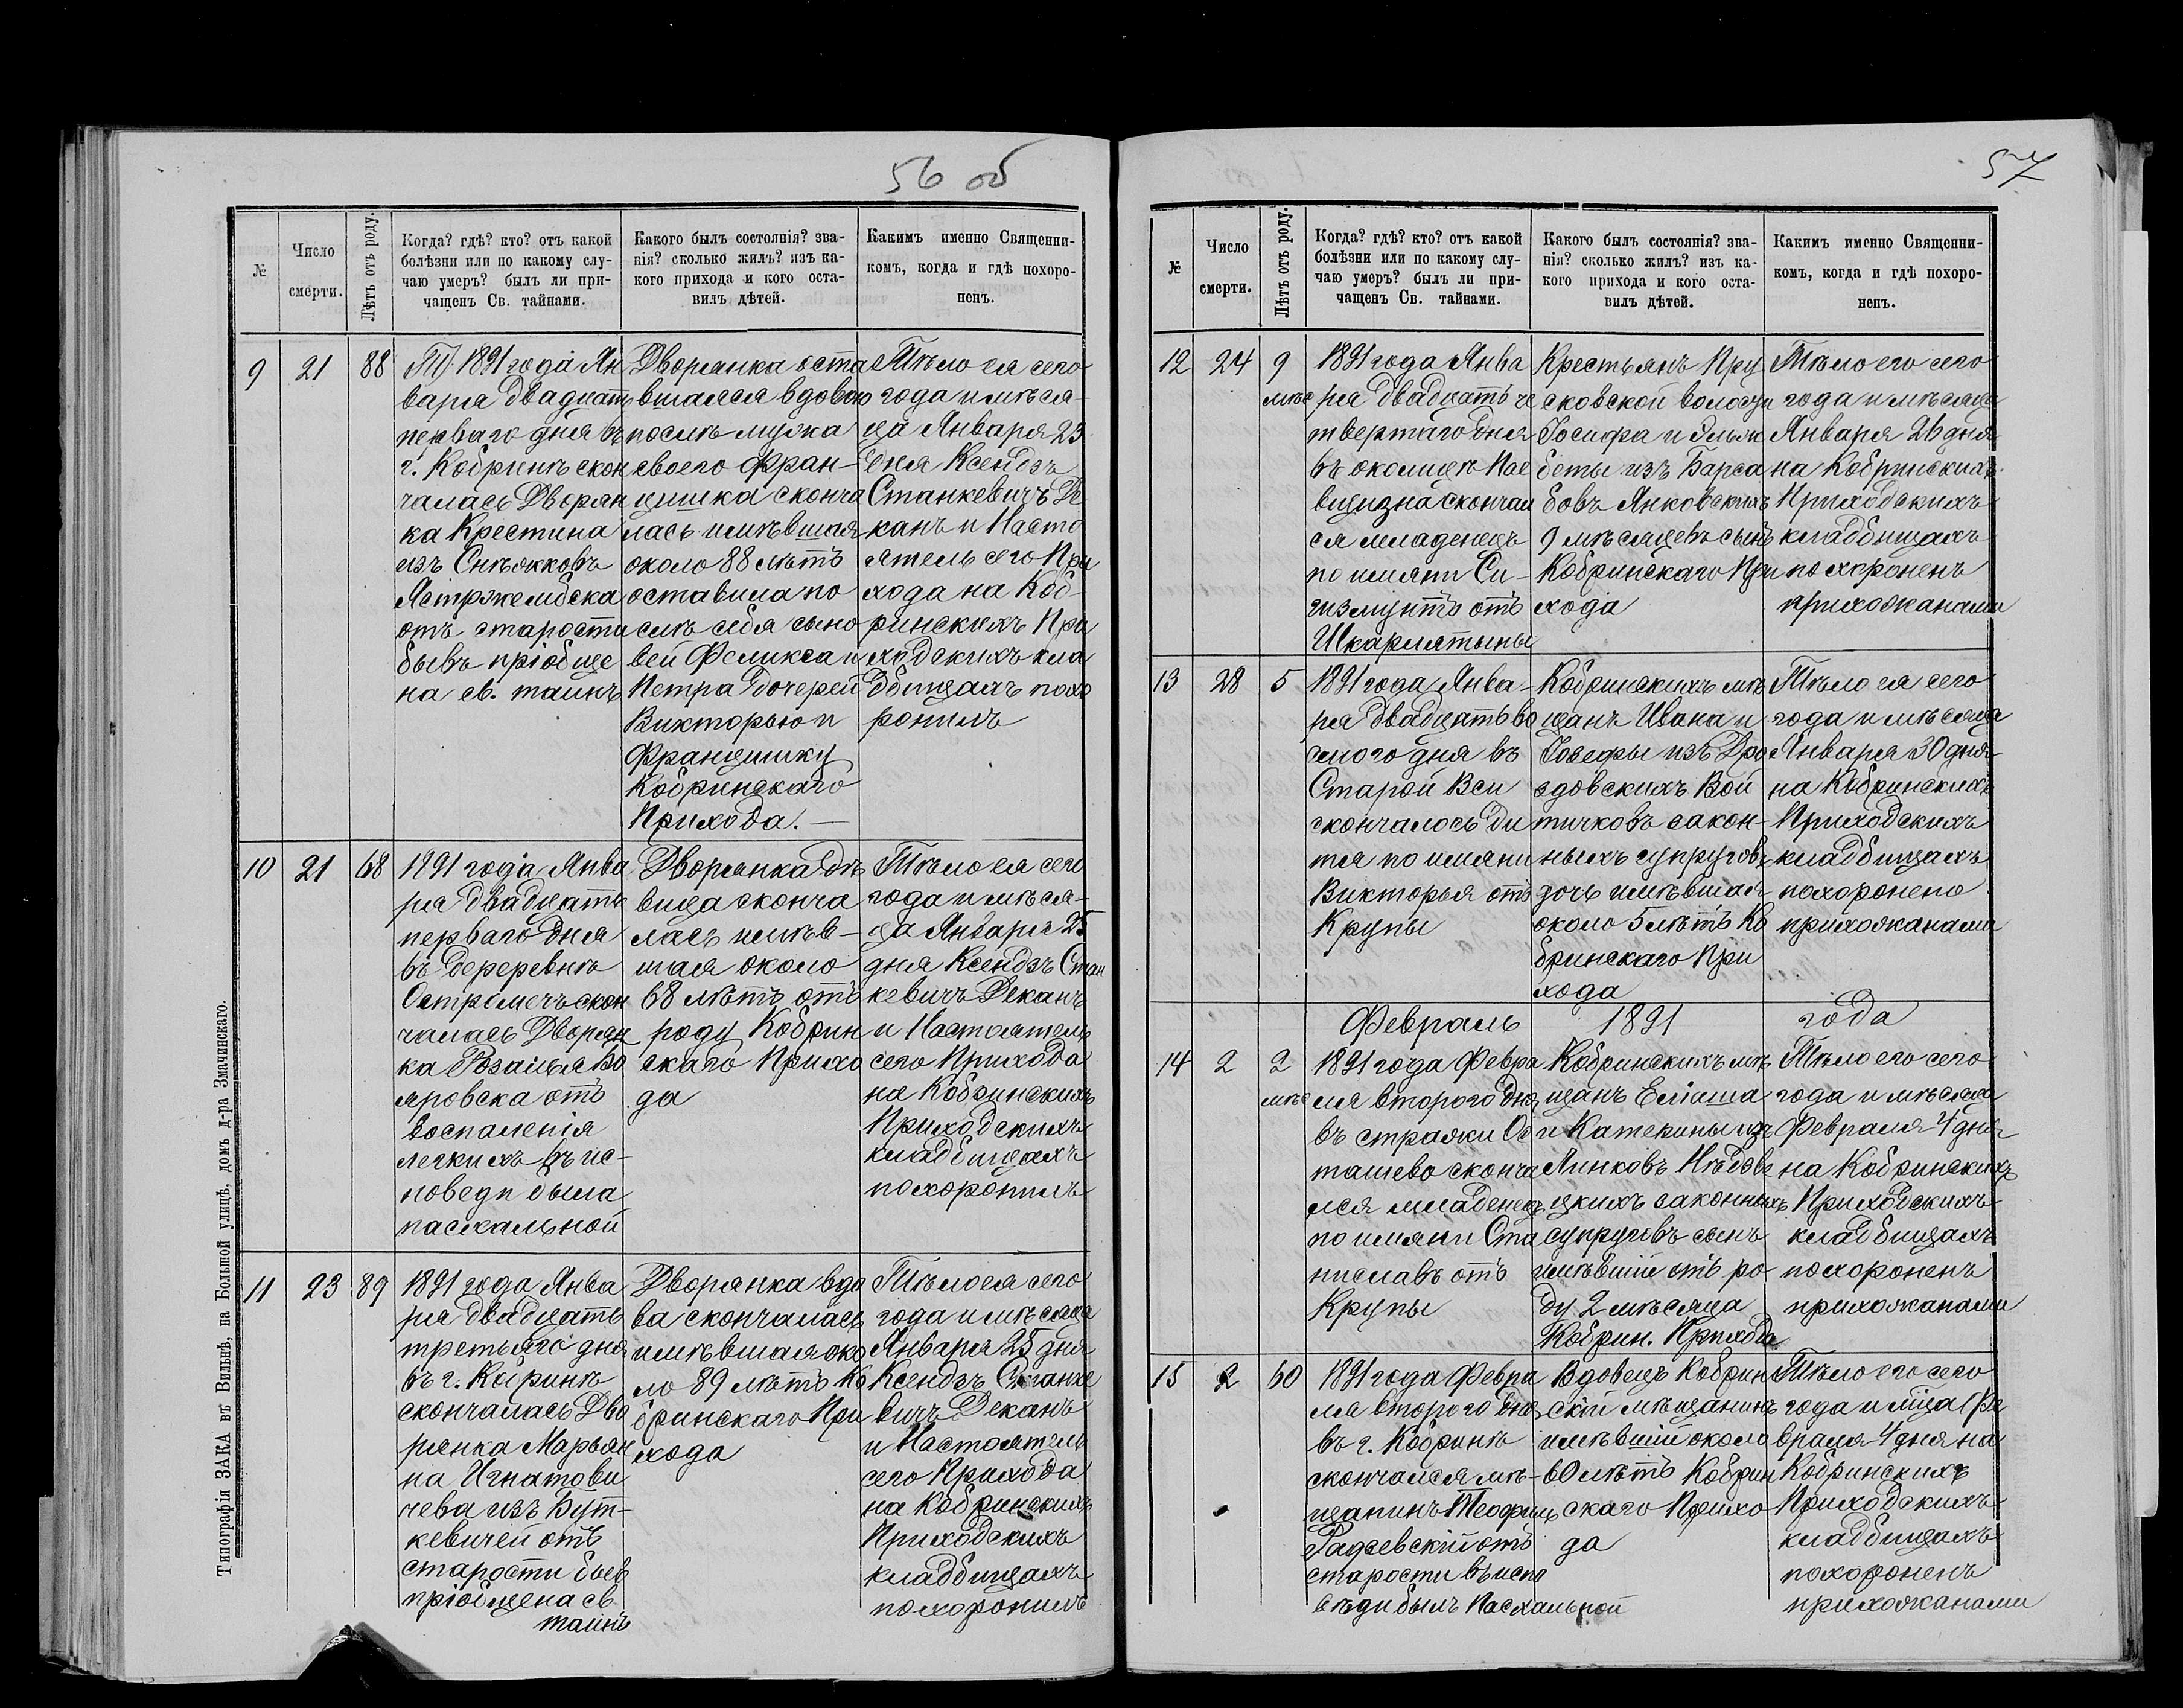 56 об
№
Число
смерти.
Лѣтъ отъ роду.
Когда? гдѣ? кто? отъ какой
болѣзни или по какому слу-
чаю умеръ? былъ ли при-
чащенъ Св. тайнами.
Какого былъ состоянія? зва-
нія? сколько жилъ? изъ ка-
кого прихода и кого оста-
вилъ дѣтей.
Какимъ именно Священни-
комъ, когда и гдѣ похоро-
ненъ.
9
21
88
1891 года Ян
варя двадцать
перваго дня въ
г. Кобринѣ скон
чалась Дворян
ка Крестина
изъ
Ястржембска
отъ старости
бывъ пріобще
на св. таинъ
Дворянка оста
вшаяся вдовою
послѣ мужа
своего Фран-
цишка сконча
лась имѣвшая
около 88 лѣтъ
оставила по
слѣ себя сыно
вей Феликса и
Петра дочерей
Викторью и
Францишку
Кобринскаго
Прихода. —
Тѣло ея сего
года и мѣся-
ца Января 23
дня Ксендзъ
Станкевичъ Де
канъ и Насто
ятель сего При
хода на Коб-
ринскихъ При
ходскихъ кла
дбищахъ похо
ронилъ
10
21
68
1891 года Янва
ря двадцать
перваго дня
въ дереревнѣ
Остромечъ скон
чалась Дворян
ка Розалья Бо
яровска отъ
воспаленія
легкихъ въ ис-
поведи была
пасхальной
Дворянка дѣ
вица сконча
лась имѣв-
шая около
68 лѣтъ отъ
роду Кобрин
скаго Прихо
да
Тѣло ея сего
года и мѣся-
ца Января 25
дня Ксендзъ Стан
кевичъ Деканъ
и Настоятель
сего Прихода
на Кобринскихъ
Приходскихъ
кладбищахъ
похоронилъ
11
23
89
1891 года Янва
ря двадцать
третьяго дня
въ г. Кобринѣ
скончалась Дво
рянка Марьян
на Игнатови
чева изъ Бут-
кевичей отъ
старости бывъ
пріобщена св.
таинъ
Дворянка вдо
ва скончалась
имѣвшая око
ло 89 лѣтъ Ко
бринскаго При
хода
Тѣло ея сего
года и мѣсяца
Января 25 дня
Ксендзъ Станке
вичъ Деканъ
и Настоятель
сего Прихода
на Кобринскихъ
Приходскихъ
кладбищахъ
похоронилъ
Типографія ЗАКА въ Вильнѣ, на Большой улицѣ, домъ д-ра Змачинскаго.
57
№
Число
смерти.
Лѣтъ отъ роду.
Когда? гдѣ? кто? отъ какой
болѣзни или по какому слу-
чаю умеръ? былъ ли при-
чащенъ Св. тайнами.
Какого былъ состоянія? зва-
нія? сколько жилъ? изъ ка-
кого прихода и кого оста-
вилъ дѣтей.
Какимъ именно Священни-
комъ, когда и гдѣ похоро-
ненъ.
12
24
9
мѣс
1891 года Янва
ря двадцать че
твертаго дня
въ околицѣ Пае
вщизна скончал
ся младенецъ
по имяни Си-
гизмунтъ отъ
Шкарлятыны
Крестьянъ Пру
сковской волости
Госифа и Эльж
беты изъ Барса
бовъ Янковскихъ
9 мѣсяцевъ сынъ
Кобринскаго При
хода
Тѣло его сего
года и мѣсяца
Января 26 дня
на Кобринскихъ
Приходскихъ
кладбищахъ
похороненъ
прихожанами
13
28
5
1891 года Янва-
ря двадцать во
смого дня въ
Старой Вси
скончалось ди
тя по имяни
Викторья отъ
Крупы
Кобринскихъ мѣ
щанъ Ивана и
Юзефы изъ Дро
здовскихъ Вой
тичковъ закон-
ныхъ супруговъ
дочь имѣвшая
около 5 лѣтъ Ко
бринскаго При
хода
Тѣло ея сего
года и мѣсяца
Января 30 дня
на Кобринскихъ
Приходскихъ
кладбищахъ
похоронено
прихожанами
Февраль 1891 года
14
2
2
мѣс
1891 года Февра
ля второго дня
въ стражи Ос
ташево сконча
лся младенецъ
по имяни Ста
ниславъ отъ
Крупы
Кобринскихъ мѣ
щанъ Еліаша
и Катекины изъ
Линковъ Нѣдзве
цкихъ законныхъ
супруговъ сынъ
имѣвшій отъ ро-
ду 2 мѣсяца
Кобрин. Прихода
Тѣло его сего
года и мѣсяца
Февраля 4 дня
на Кобринскихъ
Приходскихъ
кладбищахъ
похороненъ
прихожанами
15
2
60
1891 года Февра
ля второго дня
въ г. Кобринѣ
скончался мѣ-
щанинъ Теофиль
Гадзевскій отъ
старости въ испо
вѣди былъ Пасхальной
Вдовецъ Кобрин
скій мѣщанинъ
имѣвшій около
60 лѣтъ Кобрин
скаго Прихо
да
Тѣло его сего
года и мѣца Фе
враля 4 дня на
Кобринскихъ
Приходскихъ
кладбищахъ
похороненъ
прихожанами